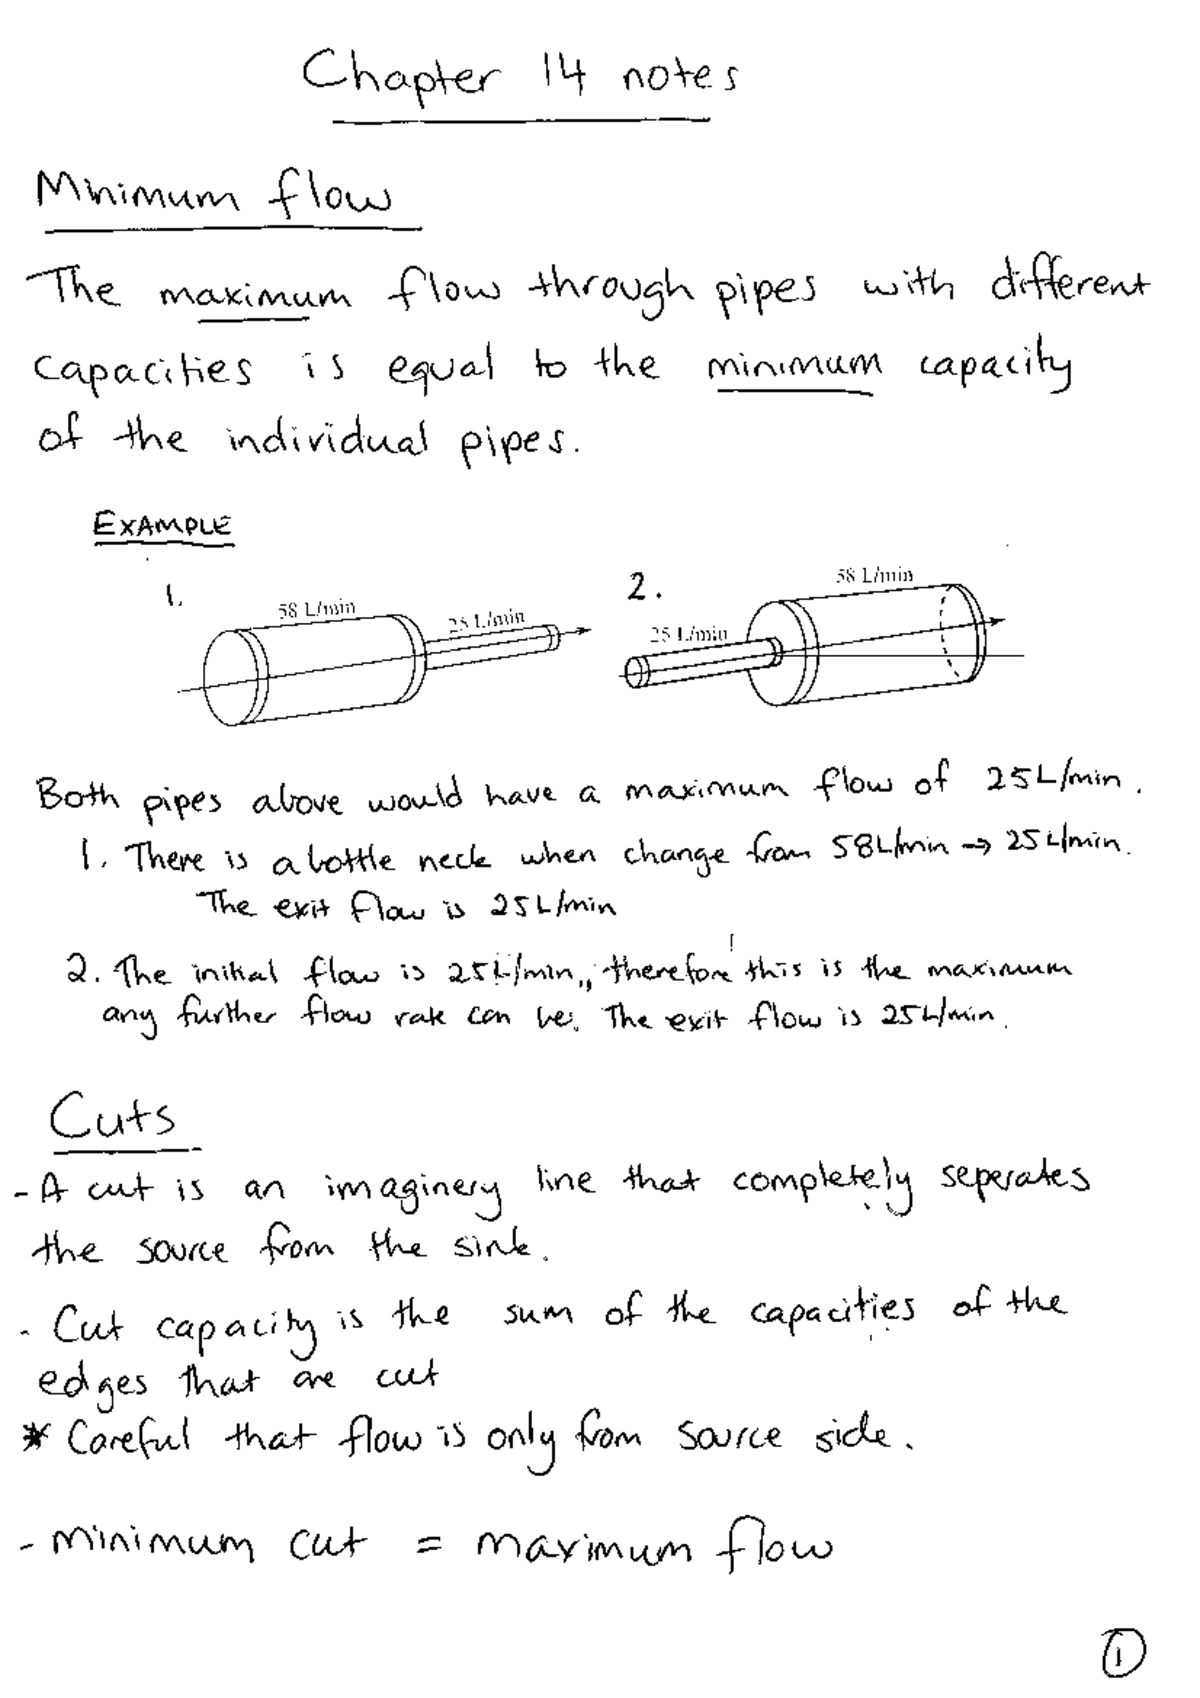 Chapter 14 notes
Minimum flow
The maximum flow through pipes with different
capacities is equal to the minimum capacity
of the individual pipes.
EXAMPLE
1.
58 L/min
25 L/min
2.
25 L/min
58 L/min
Both pipes above would have a maximum flow of 25L/min.
1. There is a bottle neck when change from 58L/min → 25L/min.
The exit flow is 25L/min
2. The initial flow is 25L/min, therefore this is the maximum
any further flow rate can be. The exit flow is 25L/min.
Cuts
- A cut is an imaginery line that completely seperates
the source from the sink.
- Cut capacity is the sum of the capacities of the
edges that are cut
* Careful that flow is only from source side.
- minimum cut = maximum flow
1